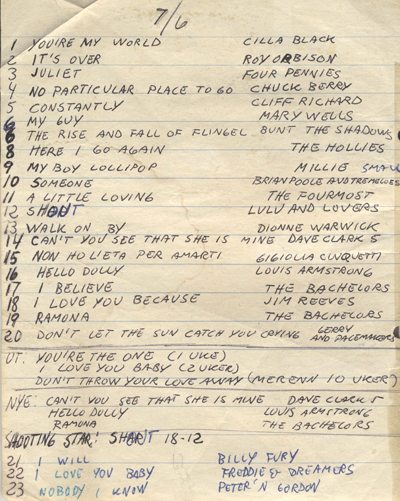 7/6
1 YOU'RE MY WORLD CILLA BLACK
2 IT'S OVER ROY ORBISON
3 JULIET FOUR PENNIES
4 NO PARTICULAR PLACE TO GO CHUCK BERRY
5 CONSTANTLY CLIFF RICHARD
6 MY GUY MARY WELLS
6 THE RISE AND FALL OF FLINGEL BUNT THE SHADOWS
8 HERE I GO AGAIN THE HOLLIES
9 MY BOY LOLLIPOP MILLIE SMALL
10 SOMEONE BRIAN POOLE AND TREMELOES
11 A LITTLE LOVING THE FOURMOST
12 SHOUT LULU AND LOVERS
13 WALK ON BY DIONNE WARWICK
14 CAN'T YOU SEE THAT SHE IS MINE DAVE CLARK 5
15 NON HO L'ETA PER AMARTI GIGIOLLA CINQUETTI
16 HELLO DOLLY LOUIS ARMSTRONG
17 I BELIEVE THE BACHELORS
18 I LOVE YOU BECAUSE JIM REEVES
19 RAMONA THE BACHELORS
20 DON'T LET THE SUN CATCH YOU CRYING GERRY AND PACEMAKERS
UT: YOU'RE THE ONE (1 UKE)
I LOVE YOU BABY (2 UKER)
DON'T THROW YOUR LOVE AWAY (MER ENN 10 UKER)
NYE: CAN'T YOU SEE THAT SHE IS MINE DAVE CLARK 5
HELLO DOLLY LOUIS ARMSTRONG
RAMONA THE BACHELORS
SHOOTING STAR: SHOUT 18-12
21 I WILL BILLY FURY
22 I LOVE YOU BABY FREDDIE & DREAMERS
23 NOBODY I KNOW PETER 'N GORDON